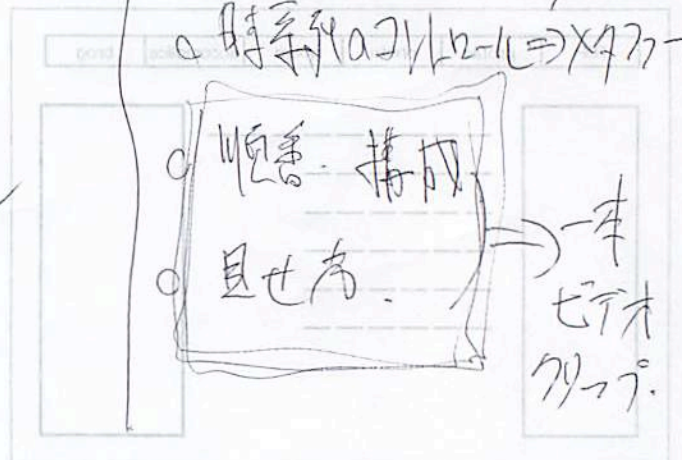 時系列のコントロール⇒メタファー
順番・構成
見せ方.
一本
ビデオ
クリップ.